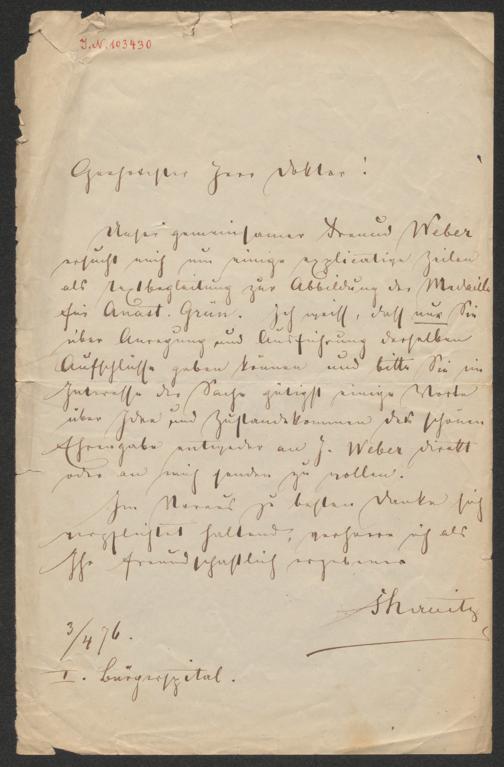 J.N. 103430
Geehrtester Herr Doktor!
Unser gemeinsamer Freund Weber
ersucht mich um einige explicative Zeilen
als Textbegleitung zur Abbildung der Medaille
für Anast. Grün. Ich weiß, daß nur Sie
über Anregung und Ausführung derselben
Aufschlüsse geben können und bitte Sie im
Interesse der Sache gütigst einige Worte
über Idee und Zustandekommen des schönen
Ehrengabe entweder an J. Weber direkt
oder an mich senden zu wollen.
Im Voraus zu besten Danke sich
verpflichtet haltend, verharre ich als
Ihr freundschaftlich ergebener
3/4 76.
I. Bürgerspital.